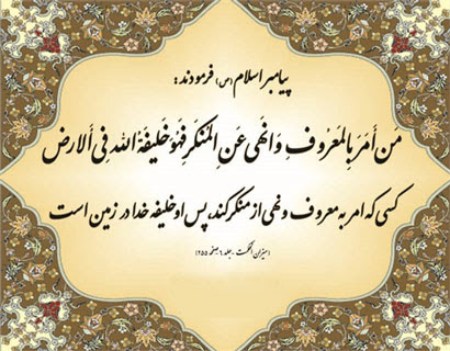 پیامبر اسلام (ص) فرمودند:
مَن أَمَرَ بِالمَعرُوفِ وَ انَهی عَنِ المُنکَرِ فَهُوَ خَلیفَةُ الله فِی أَلارض
کسی که امر به معروف و نهی از منکر کند، پس او خلیفه خدا در زمین است
(میزان الحکمت - جلد ٦ صفحه ٢٥٥)